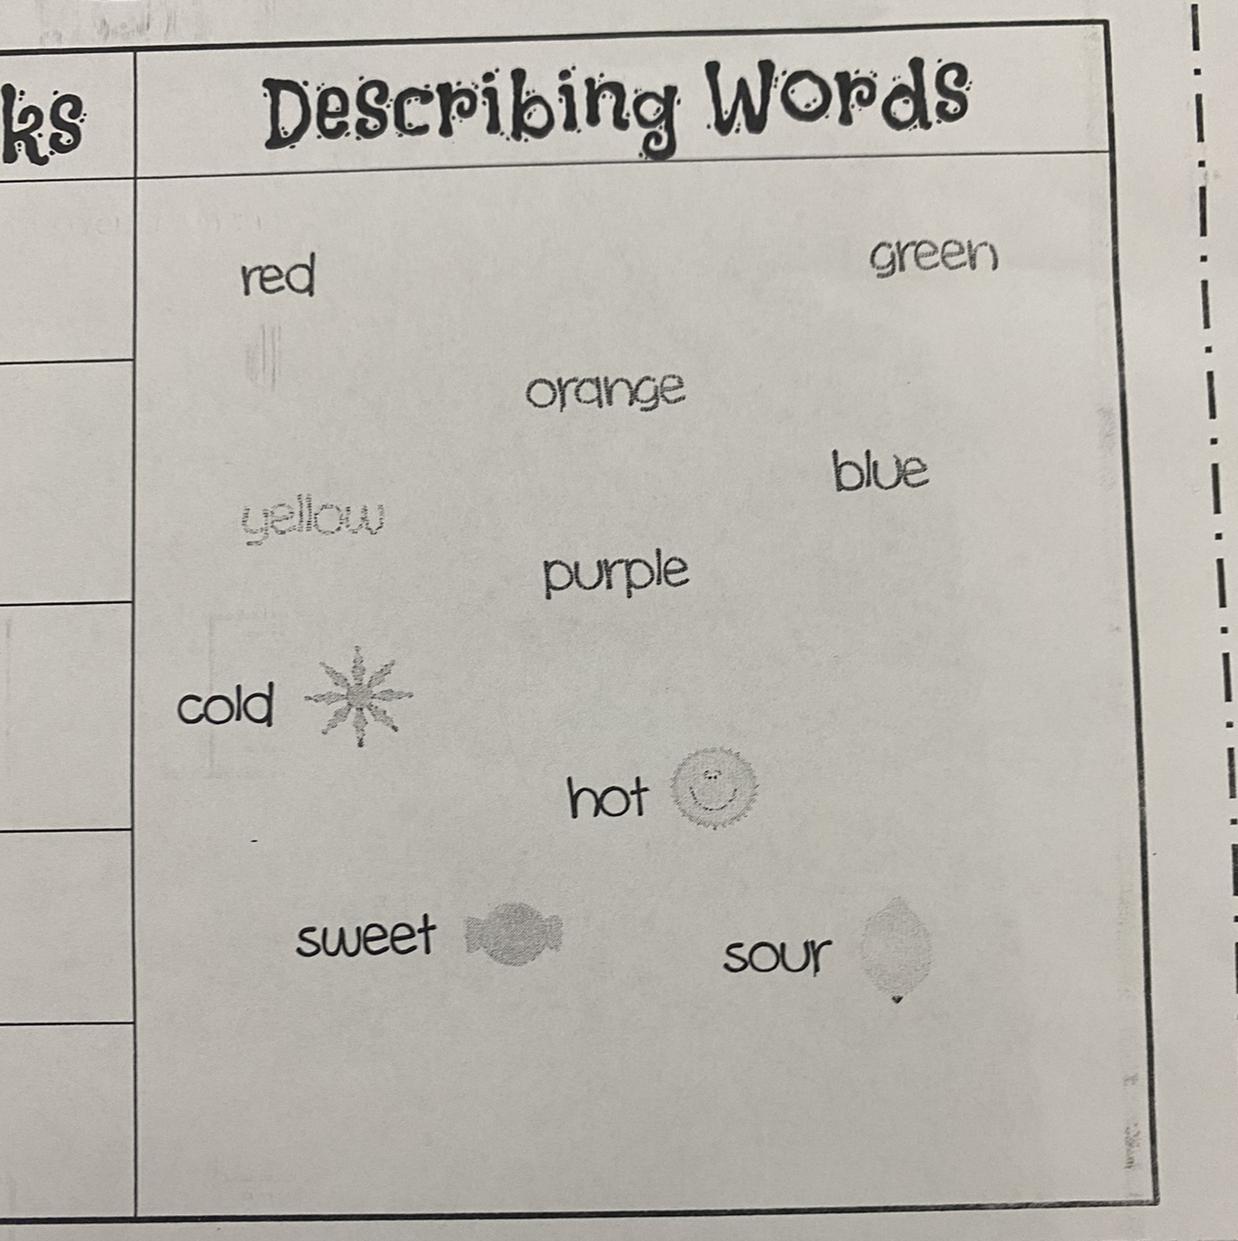 ks
Describing Words
red
green
orange
blue
yellow
purple
cold
hot
sweet
sour